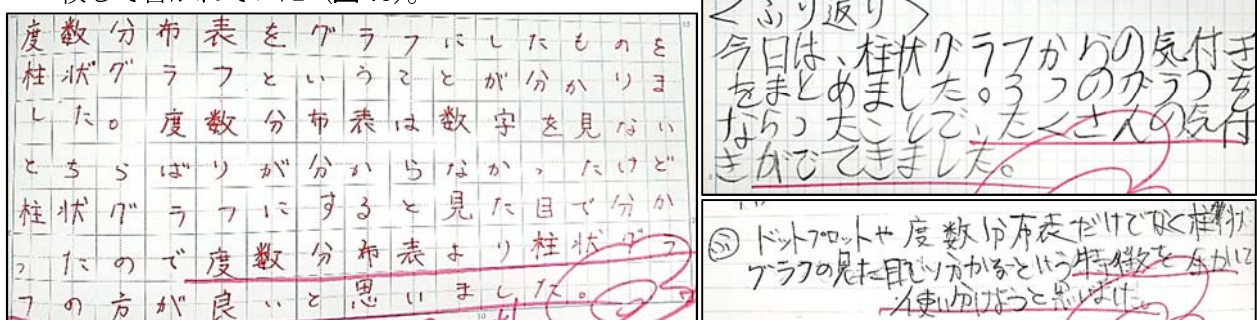 度数分布表をグラフにしたものを
柱状グラフということが分かりま
した。度数分布表は数字を見ない
とちらばりが分からなかったけど
柱状グラフにすると見た目で分か
ったので度数分布表より柱状グラ
フの方が良いと思いました。
<ふり返り>
今日は、柱状グラフからの気付き
をまとめました。3つのグラフを
ならったことで、たくさんの気付
きがでてきました。
ふ ドットプロットや度数分布表だけでなく柱状
グラフの見た目で分かるという特徴を生かして
使い分けようと思いました。